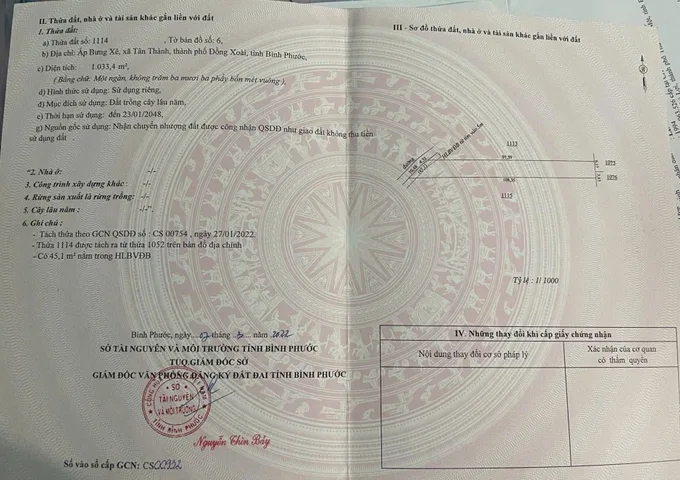 II. Thửa đất, nhà ở và tài sản khác gắn liền với đất
1. Thửa đất:
a) Thửa đất số: 1114 , Tờ bản đồ số: 6,
b) Địa chỉ: Ấp Bưng Xê, xã Tân Thành, thành phố Đồng Xoài, tỉnh Bình Phước,
c) Diện tích: 1.033,4 m²,
( Bằng chữ: Một ngàn, không trăm ba mươi ba phẩy bốn mét vuông ),
d) Hình thức sử dụng: Sử dụng riêng,
đ) Mục đích sử dụng: Đất trồng cây lâu năm,
e) Thời hạn sử dụng: đến 23/01/2048,
g) Nguồn gốc sử dụng: Nhận chuyển nhượng đất được công nhận QSDĐ như giao đất không thu tiền
sử dụng đất
"2. Nhà ở: -/-
3. Công trình xây dựng khác : -/-
4. Rừng sản xuất là rừng trồng: -/-
5. Cây lâu năm : -/-".
6. Ghi chú :
- Tách thửa theo GCN QSDĐ số : CS 00754 , ngày 27/01/2022.
- Thửa 1114 được tách ra từ thửa 1052 trên bản đồ địa chính
- Có 45,1 m² nằm trong HLBVĐB
Bình Phước, ngày 07 tháng 3 năm 2022
SỞ TÀI NGUYÊN VÀ MÔI TRƯỜNG TỈNH BÌNH PHƯỚC
TUQ.GIÁM ĐỐC SỞ
GIÁM ĐỐC VĂN PHÒNG ĐĂNG KÝ ĐẤT ĐAI TỈNH BÌNH PHƯỚC
SỞ
TÀI NGUYÊN
VÀ MÔI TRƯỜNG
TỈNH BÌNH PHƯỚC
Nguyễn Chín Bảy
Số vào sổ cấp GCN: CS00992
III - Sơ đồ thửa đất, nhà ở và tài sản khác gắn liền với đất
đường
HLBVĐB
1113
1075
1076
1115
Tỷ lệ : 1/ 1000
IV. Những thay đổi khi cấp giấy chứng nhận
Nội dung thay đổi cơ sở pháp lý
Xác nhận của cơ quan
có thẩm quyền